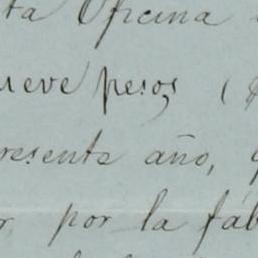 ta Oficina
ueve pesos (
resente año,
r por la fáb